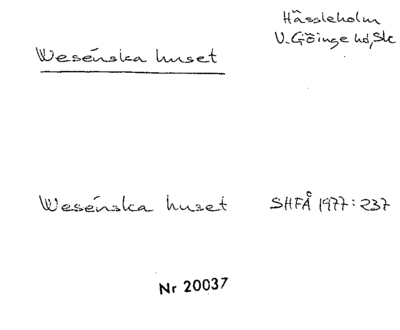 Hässleholm
V. Göinge hd, Sk
Wesénska huset
Wesénska huset SHFÅ 1977:237
Nr 20037